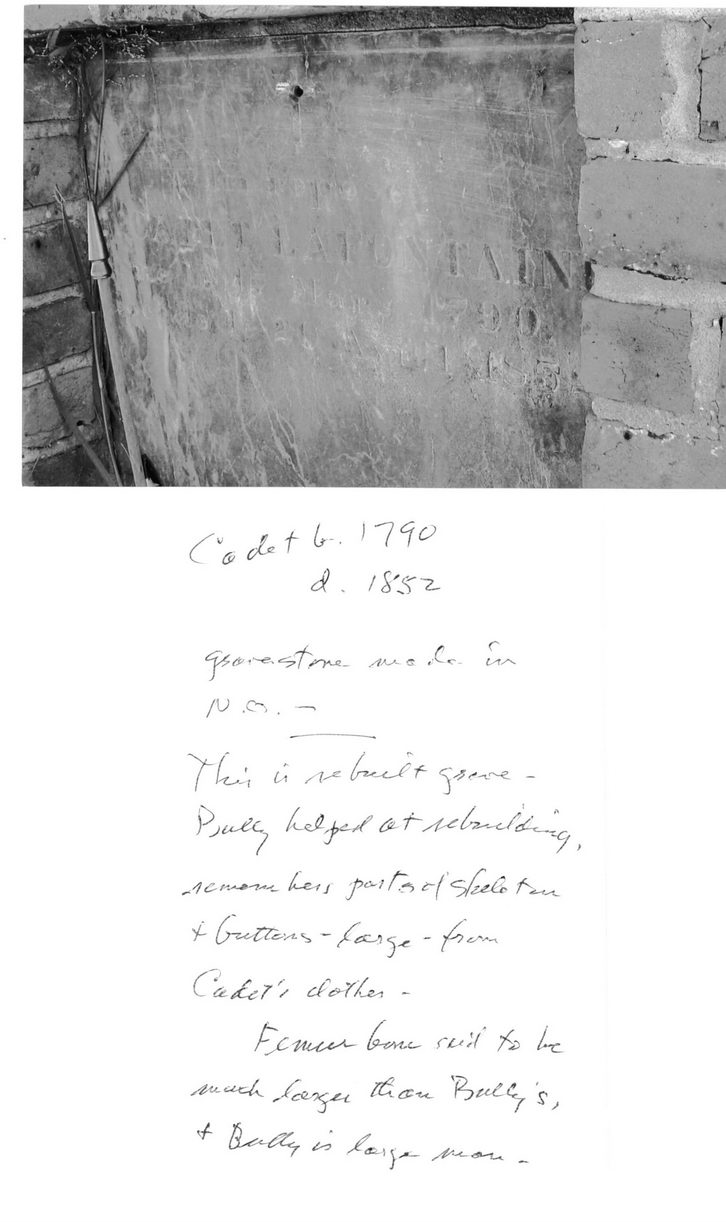 LAFONTAIN
1790
Cadet b. 1790
d. 1852
gravestone made in
N.O. —
This is rebuilt grave -
Bully helped at rebuilding,
remembers parts of skeleton
+ buttons - large - from
Cadet's clothes -
Femur bone said to be
much larger than Bully's,
+ Bully is large man -